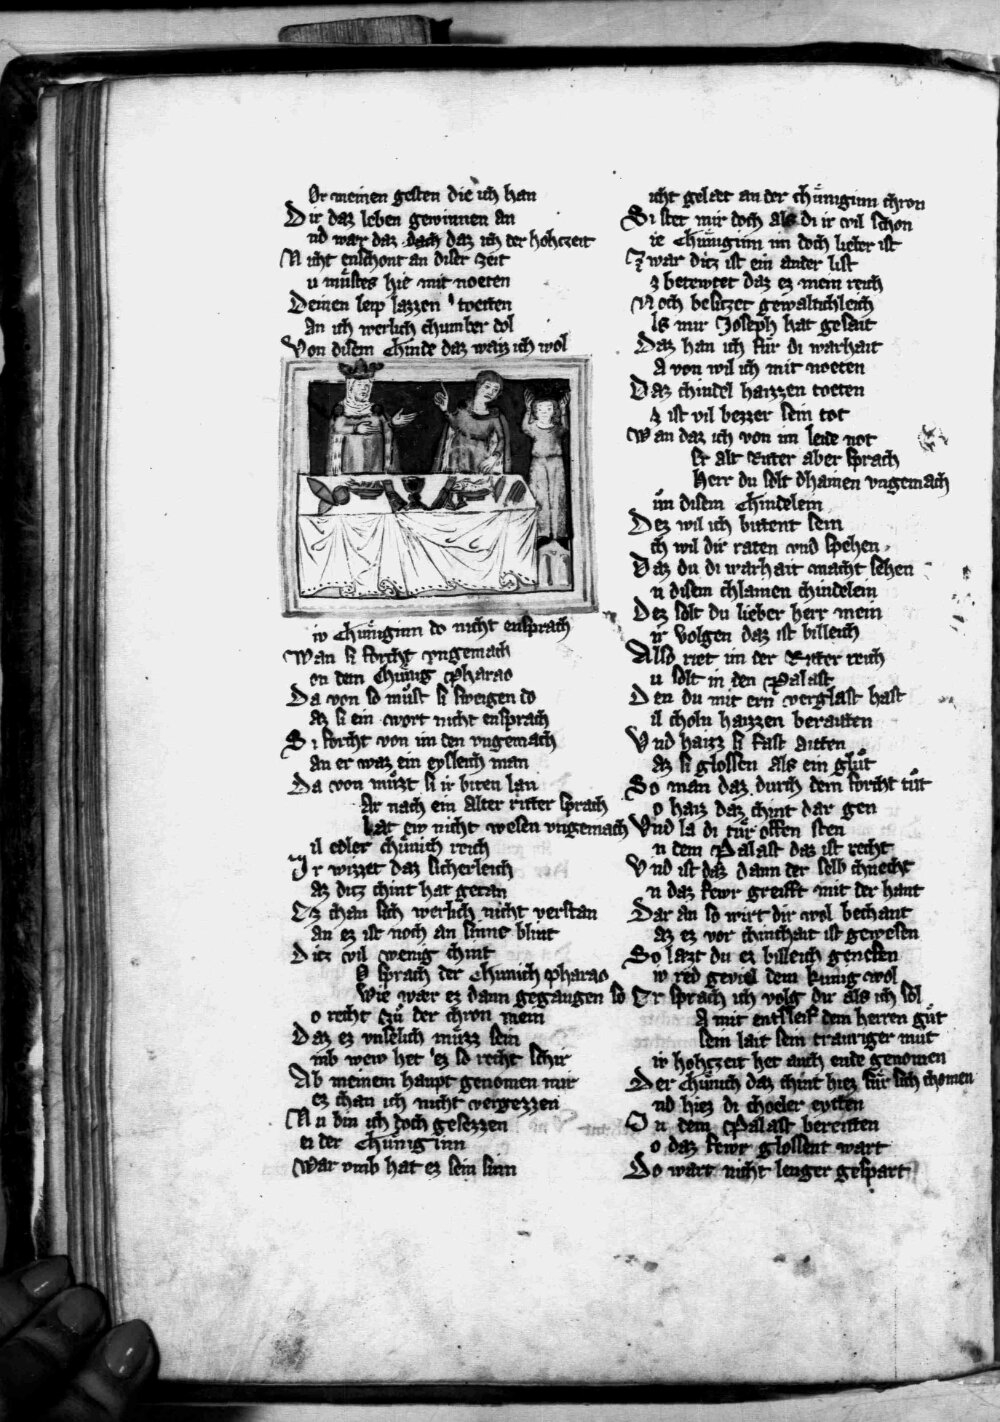 Or meinen gesten die ich han
Dir daz leben gewinnen an
nd war daz dach daz ich der hohczeit
Nicht enschont an diser zeit
u müstes hie mit noeten
Deinen leip lazzen toetten
an ich werlich chumber dol
Von disem Chinde daz waiz ich wol
iv Chünginn do nicht ensprach
Wan si forcht vngemach
on dem Chünig Pharao
Da von so müst si sweigen do
az si ein wort nicht ensprach
Si forcht von im den vngemach
an er waz ein eysleich man
Da von müzt si ir biten lan
Ar nach ein alter ritter sprach
Lat ew nicht wesen vngemach
il edler chünich reich
Ir wizzet daz sicherleich
az ditz chint hat getan
Ez chan sich werlich nicht verstan
an ez ist noch an sinne blint
Ditz vil wenig chint
O sprach der Chunich Pharao
Wie wær ez dann gegangen so
o recht zü der chron mein
Daz ez vnselich müzz sein
mb wew het ez so recht schir
Ab meinem haupt genomen mir
ez chan ich nicht vergezzen
Nu bin ich doch gesezzen
ei der Chünginn
War vmb hat ez sein sinn
icht gelaet an der chünginn chron
Si stet mir doch als di ir vil schon
ie Chünginn im doch lieber ist
Zwar ditz ist ein ander list
z betewtet daz ez mein reich
Noch besitzet gewaltichleich
ls mir Joseph hat gesait
Daz han ich für di warhait
A von wil ich mit noeten
Daz chindel haizzen toeten
z ist vil bezzer sein tot
Wan daz ich von im leide not
er alt Ritter aber sprach
Herr du solt dhainen vngemach
üm disem Chindelein
Dez wil ich bittent sein
ch wil dir raten vnd spehen
Daz du di warhait macht sehen
n disem chlainen chindelein
Dez solt du lieber herr mein
ir volgen daz ist billeich
Also riet im der Ritter reich
u solt in den Palast
Den du mit ern verglast hast
il choln haizzen beraitten
Vnd haizz si fast aitten
az si glossen als ein glüt
So man daz durch dem forcht tüt
o haiz daz chint dar gen
Vnd la di tür offen sten
n dem Palast daz ist recht
Vnd ist daz dann der selb chnecht
n daz fewr greifft mit der hant
Dar an so wirt dir wol bechant
az ez vor chinthait ist gewesen
So lazt du ez billeich genesen
iv red geviel dem kunig wol
Er sprach ich volg dir als ich sol
A mit entsleif dem herren güt
sein lait sein trauriger mut
ir hohczeit het auch ende genomen
Der Chünich daz chint hiez für sich chomen
nd hiez di choeler eytten
In dem Palast bereitten
o daz fewr glossent wart
Do wart nicht lenger gespart